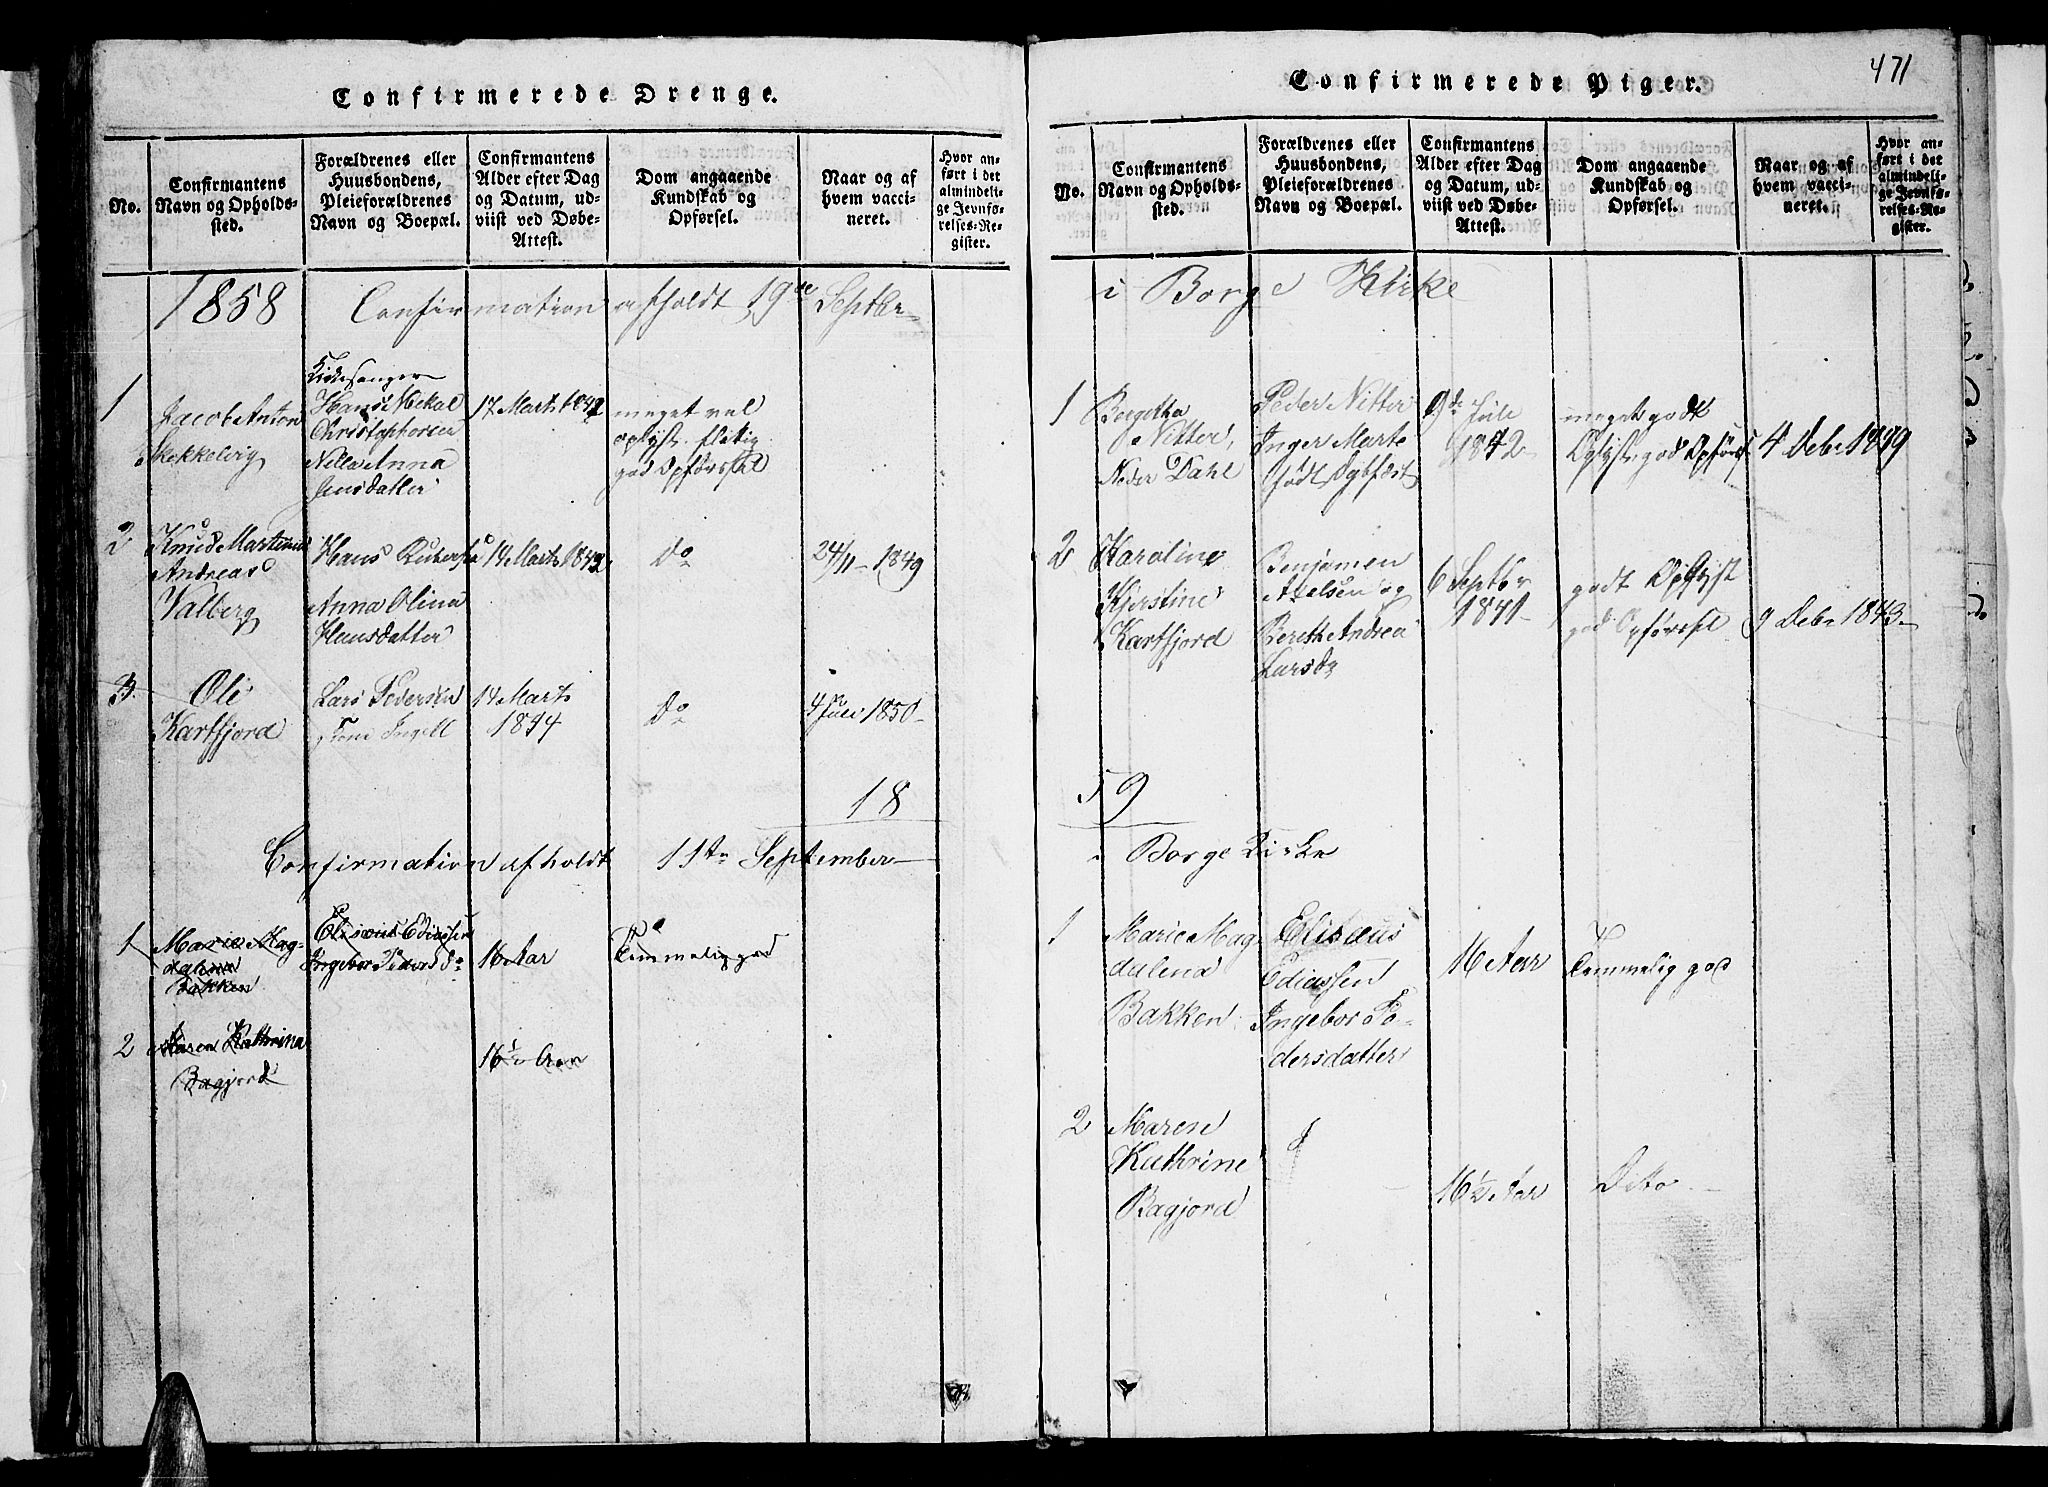 Confirmerede Drenge.
No.
Confirmantens
Navn og Opholds-
sted.
Forældrenes eller
Huusbondens,
Pleieforældrenes
Navn og Boepæl.
Confirmantens
Alder efter Dag
og Datum, ud-
viist ved Døbe-
Attest.
Dom angaaende
Kundskab og
Opførsel.
Naar og af
hvem vacci-
neret.
Hvor an-
ført i det
almindeli-
ge Jevnfø-
relses-Re-
gister.
1858 Confirmation afholdt 19de Septbr
1
Jacob Anton
Skekkelvig
Kirkesanger
Hans Mekal
Christophersen
Nella Anna
Jensdatter
17 Marts 1842
meget vel
oplyst flitig
god Opførsel
2
Knud Martinus
Andreas
Valberg
Hans
Anna Olina
Hansdatter
14 Marts 1843
Do
24/11 1849
3
Ole
Kartfjord
Lars Pedersen
Ingell
14 Marts
1844
Do
4 Juli 1850
18
Confirmation afholdt 11te September
1
Marie Mag-
dalena
Bakken
Elisæus Ediassen
Ingebor Pedersda
16 Aar
Temmelig god
2
Maren Kathrina
Bagjord
16½ Aar
471
Confirmerede Piger.
No.
Confirmantens
Navn og Opholds-
sted.
Forældrenes eller
Huusbondens,
Pleieforældrenes
Navn og Boepæl.
Confirmantens
Alder efter Dag
og Datum, ud-
viist ved Døbe-
Attest.
Dom angaaende
Kundskab og
Opførsel.
Naar og af
hvem vacci-
neret.
Hvor an-
ført i det
almindeli-
ge Jevnfø-
relses-Re-
gister.
i Borge Kirke
1
Bergitha
Nitter,
Neder Dahl
Peder Nitter
Inger Marte
født Dybfest
9de Juli
1842
meget godt
Oplyst, god Opførsel
4 Debr 1849
2
Karoline
Kjerstine
Kartfjord
Benjamen
Axelsen og
Bereth Andrea
Larsda
6 Septbr
1841
godt Oplyst
god Opførsel
9 Debr 1843
59
i Borge Kirke
1
Marie Mag-
dalena
Bakken
Elisæus
Ediassen
Ingebor Pe-
dersdatter
16 Aar
Temmelig god
2
Maren
Kathrine
Bagjord
16½ Aar
Dito